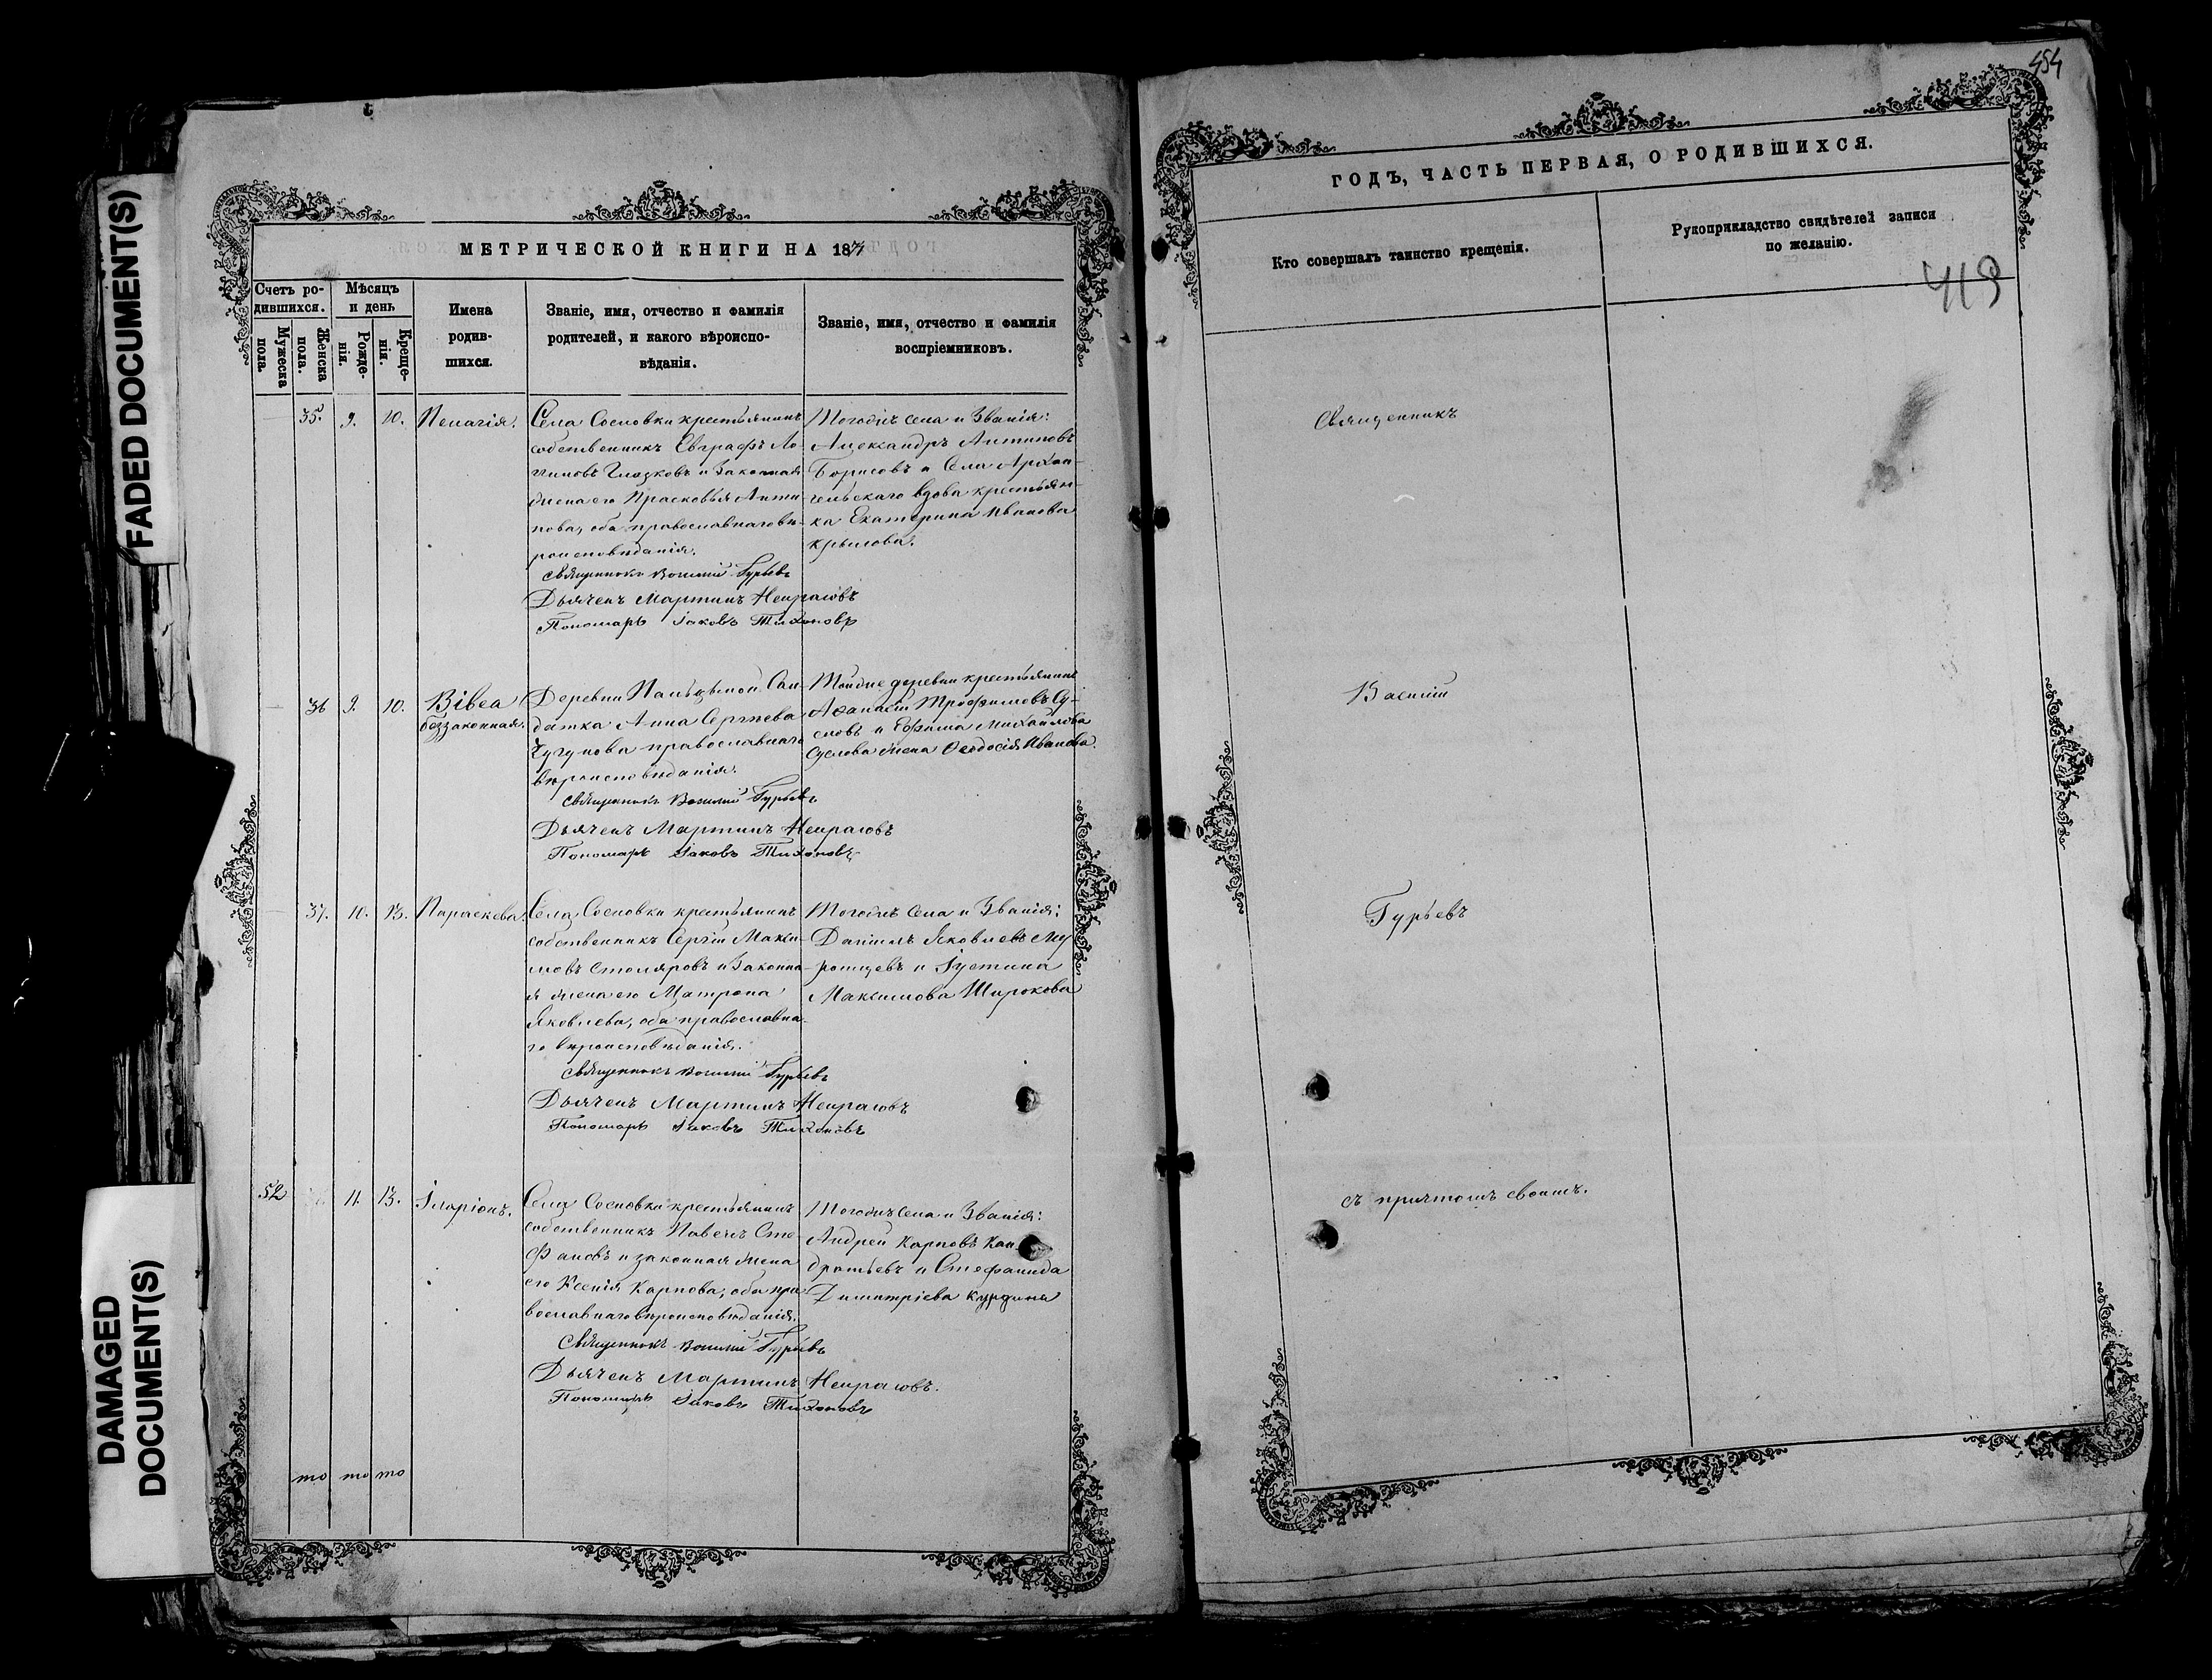 FADED DOCUMENT(S)
DAMAGED
DOCUMENT(S)
МЕТРИЧЕСКОЙ КНИГИ НА 1874
Счетъ ро-
дившихся.
Мужеска
пола.
Женска
пола.
Мѣсяцъ
и день
Рожде-
нія.
Креще-
нія.
Имена
родив-
шихся.
Званіе, имя, отчество и фамилія
родителей, и какого вѣроиспо-
вѣданія.
Званіе, имя, отчество и фамилія
воспріемниковъ.
35. 9. 10. Пелагія.
Села Сосновки крестьянинъ
собственникъ Евграфъ Ло-
гиновъ Глазковъ и законная
жена его Прасковья Анти-
пова, оба православнаго вѣ-
роисповѣданія.
Священникъ Василій Гурьевъ
Дьячекъ Мартинъ Некрасовъ
Пономарь Іаковъ Тихоновъ
Тогожъ села и званія:
Александръ Антиповъ
Борисовъ и Села Архан-
гельскаго вдова крестьян-
ка Екатерина Иванова
Крылова.
36 9. 10. Вівеа
беззаконная.
Деревни Сол-
датка Анна Сергѣева
Чугунова православнаго
вѣроисповѣданія.
Священникъ Василій Гурьевъ
Дьячекъ Мартинъ Некрасовъ
Пономарь Іаковъ Тихоновъ
Тойже деревни крестьянинъ
Афанасій Трофимовъ Су-
словъ и Ефима Михайлова
Суслова жена Феодосія Иванова.
37. 10. 13. Параскева.
Села Сосновки крестьянинъ
собственникъ Сергій Макси-
мовъ Столяровъ и законна-
я жена его Матрона
Яковлева, оба православна-
го вѣроисповѣданія.
Священникъ Василій Гурьевъ
Дьячекъ Мартинъ Некрасовъ
Пономарь Іаковъ Тихоновъ
Тогожъ села и званія:
Даніилъ Яковлевъ Му
ромцевъ и Іустина
Максимова Широкова
52 11. 13. Иларіонъ.
Села Сосновки крестьянинъ
собственникъ Павелъ Сте-
фановъ и законная жена
его Ксенія Карпова, оба пра-
вославнаго вѣроисповѣданія.
Священникъ Василій Гурьевъ
Дьячекъ Мартинъ Некрасовъ.
Пономарь Іаковъ Тихоновъ
Тогожъ села и званія:
Андрей Карповъ Кон
дратьевъ и Стефанида
Димитріева Курдина
то то то
454
ГОДЪ, ЧАСТЬ ПЕРВАЯ, О РОДИВШИХСЯ.
Кто совершалъ таинство крещенія.
Рукоприкладство свидѣтелей записи
по желанію.
419
Священникъ
Василій
Гурьевъ
съ причтомъ своимъ.